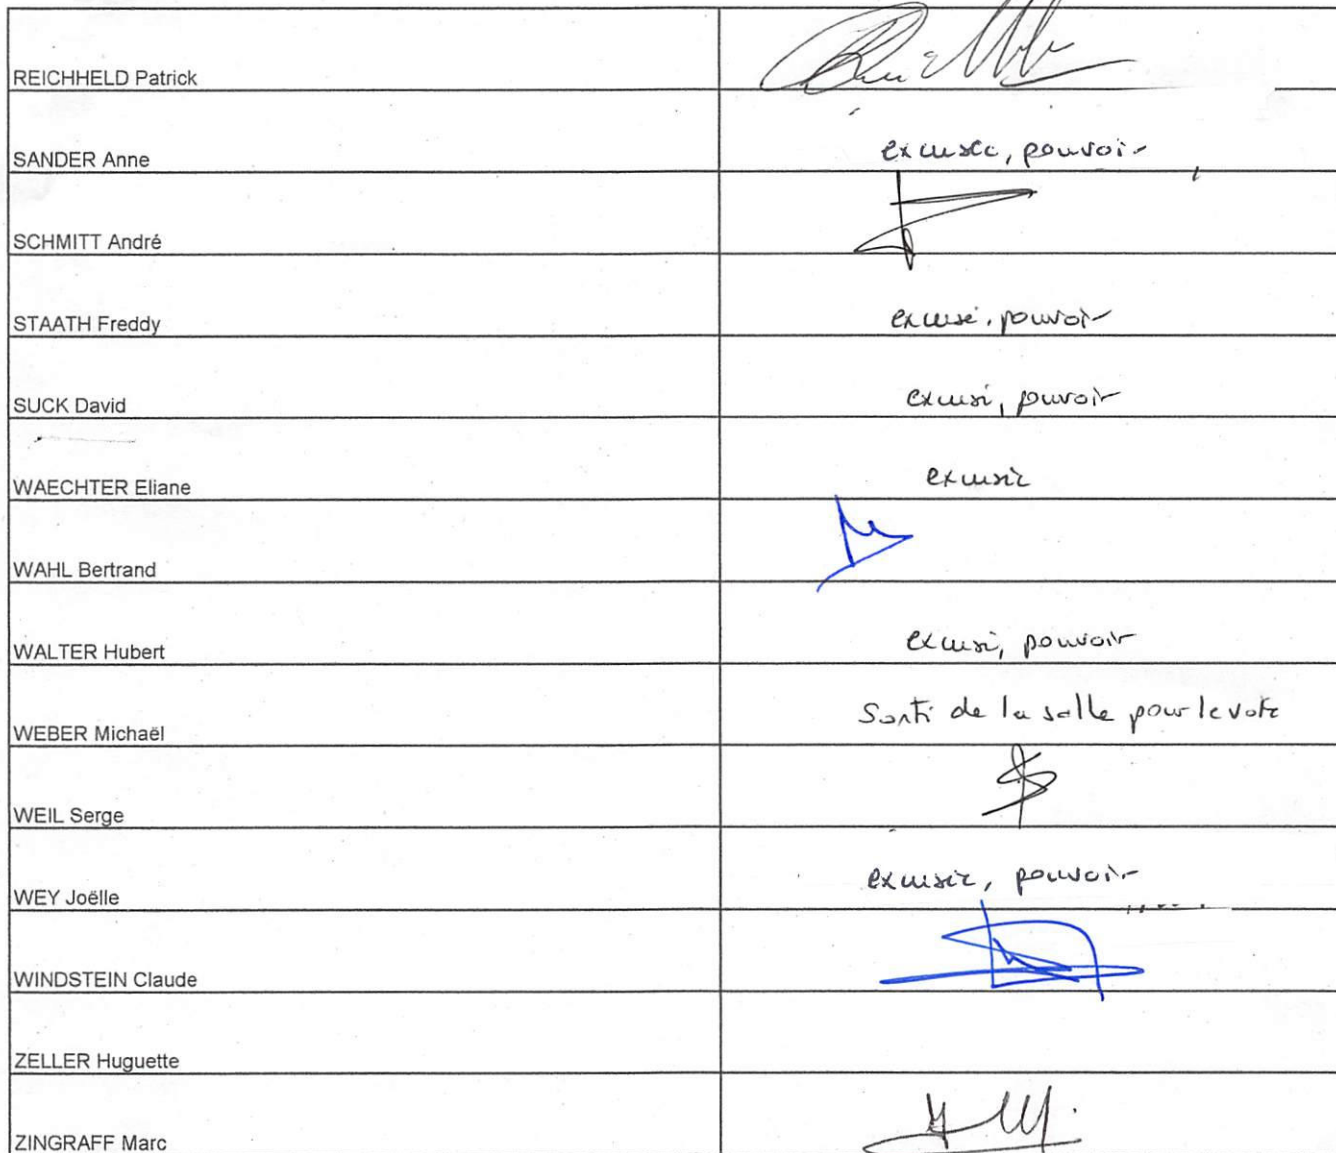 REICHHELD Patrick
SANDER Anne excusée, pouvoir
SCHMITT André
STAATH Freddy excusé, pouvoir
SUCK David excusé, pouvoir
WAECHTER Eliane excusée
WAHL Bertrand
WALTER Hubert excusé, pouvoir
WEBER Michaël Sorti de la salle pour le vote
WEIL Serge
WEY Joëlle excusée, pouvoir
WINDSTEIN Claude
ZELLER Huguette
ZINGRAFF Marc